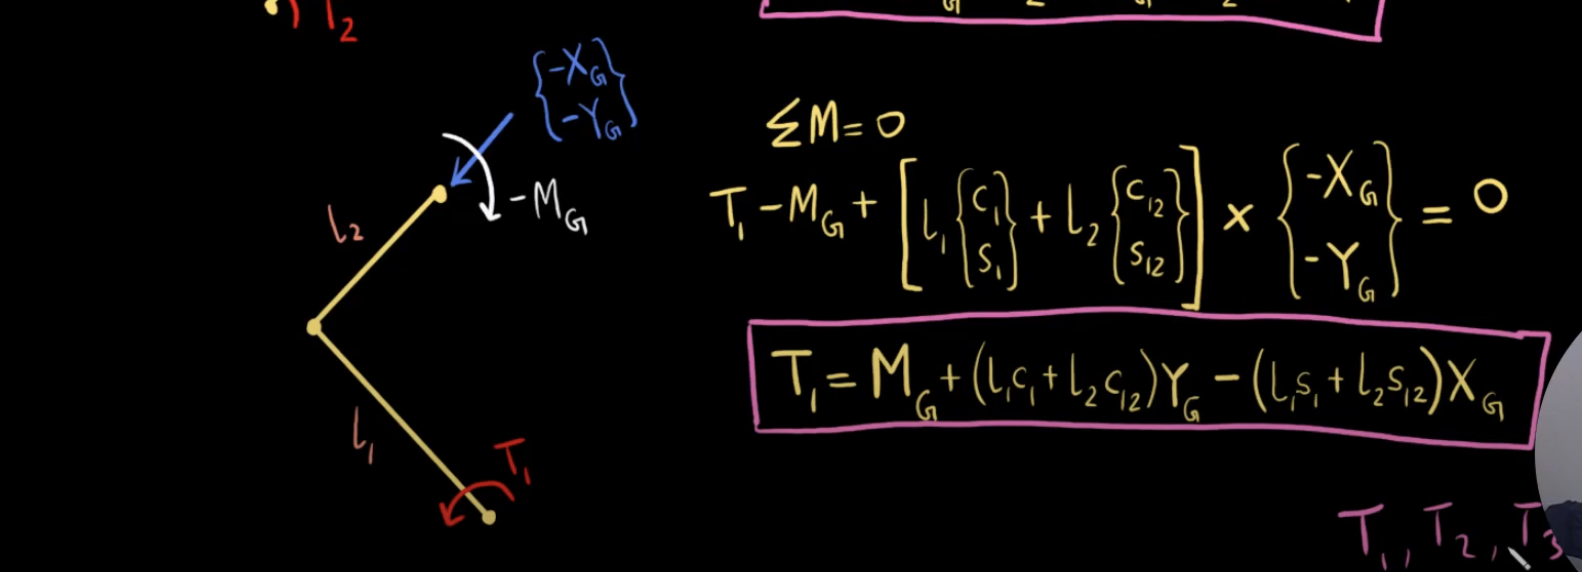 T₂
{-X_G
-Y_G}
ΣM=0
l₂
-M_G
T₁-M_G+[l₁{c₁ s₁}+l₂{c₁₂ s₁₂}]×{-X_G -Y_G}=0
T₁=M_G+(l₁c₁+l₂c₁₂)Y_G-(l₁s₁+l₂s₁₂)X_G
l₁
T₁
T₁,T₂,T₃